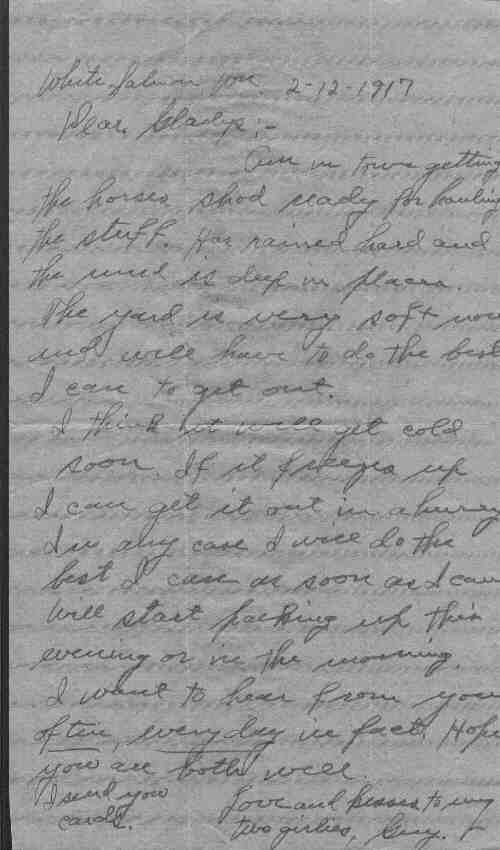 White Salmon Wn. 2-12-1917
Dear Gladys:-
Am in town getting
the horses shod ready for hauling
the stuff. Has rained hard and
the mud is deep in places.
The yard is very soft now
and will have to do the best
I can to get out.
I think it will get cold
soon. If it freezes up
I can get it out in a hurry
In any case I will do the
best I can as soon as I can
Will start packing up this
evening or in the morning.
I want to hear from you
often, every day in fact. Hope
you are both well.
I send you
cards.
Love and kisses to my
two girlies, Guy. +